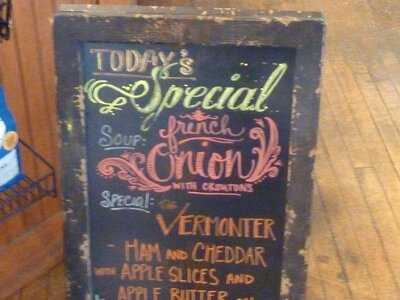 TODAY'S
Special
SOUP: french
Onion
WITH CROUTONS
SPECIAL: THE
VERMONTER
- HAM AND CHEDDAR
WITH APPLE SLICES AND
APPLE BUTTER ON